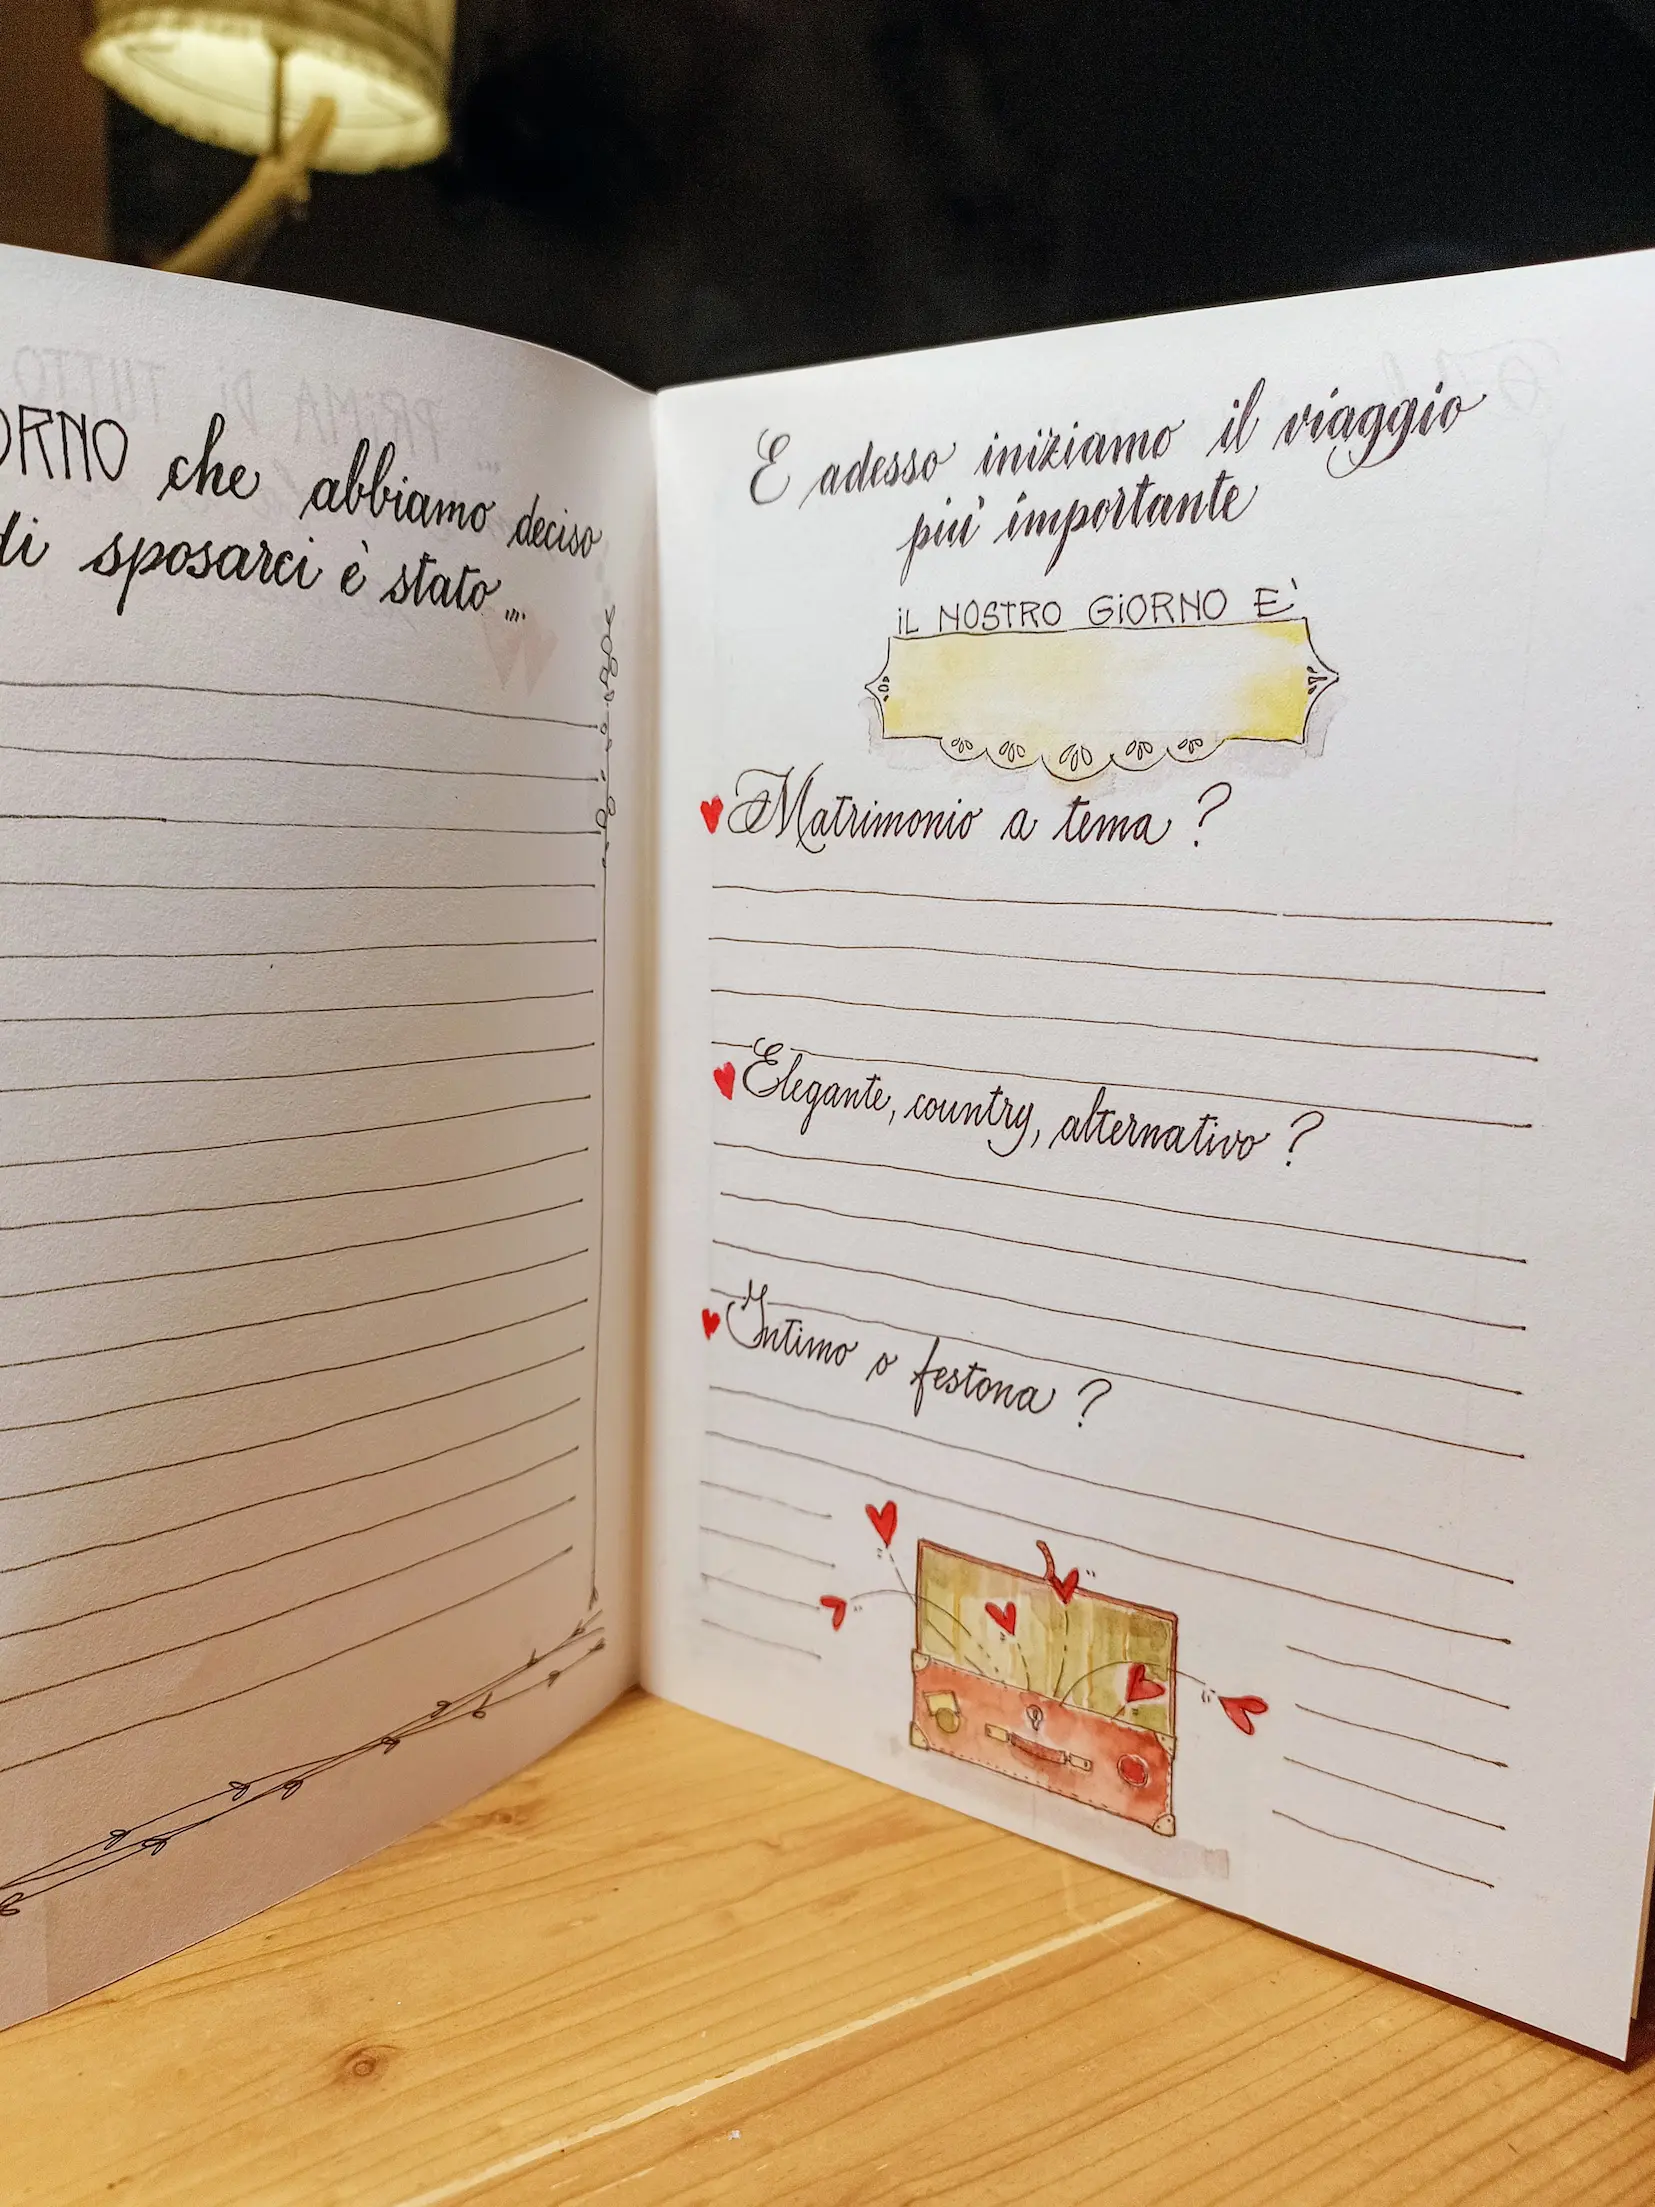 ORNO che abbiamo deciso
di sposarci è stato...
E adesso iniziamo il viaggio
più importante
iL NOSTRO GiORNO E'
Matrimonio a tema?
Elegante, country, alternativo?
Intimo o festona?